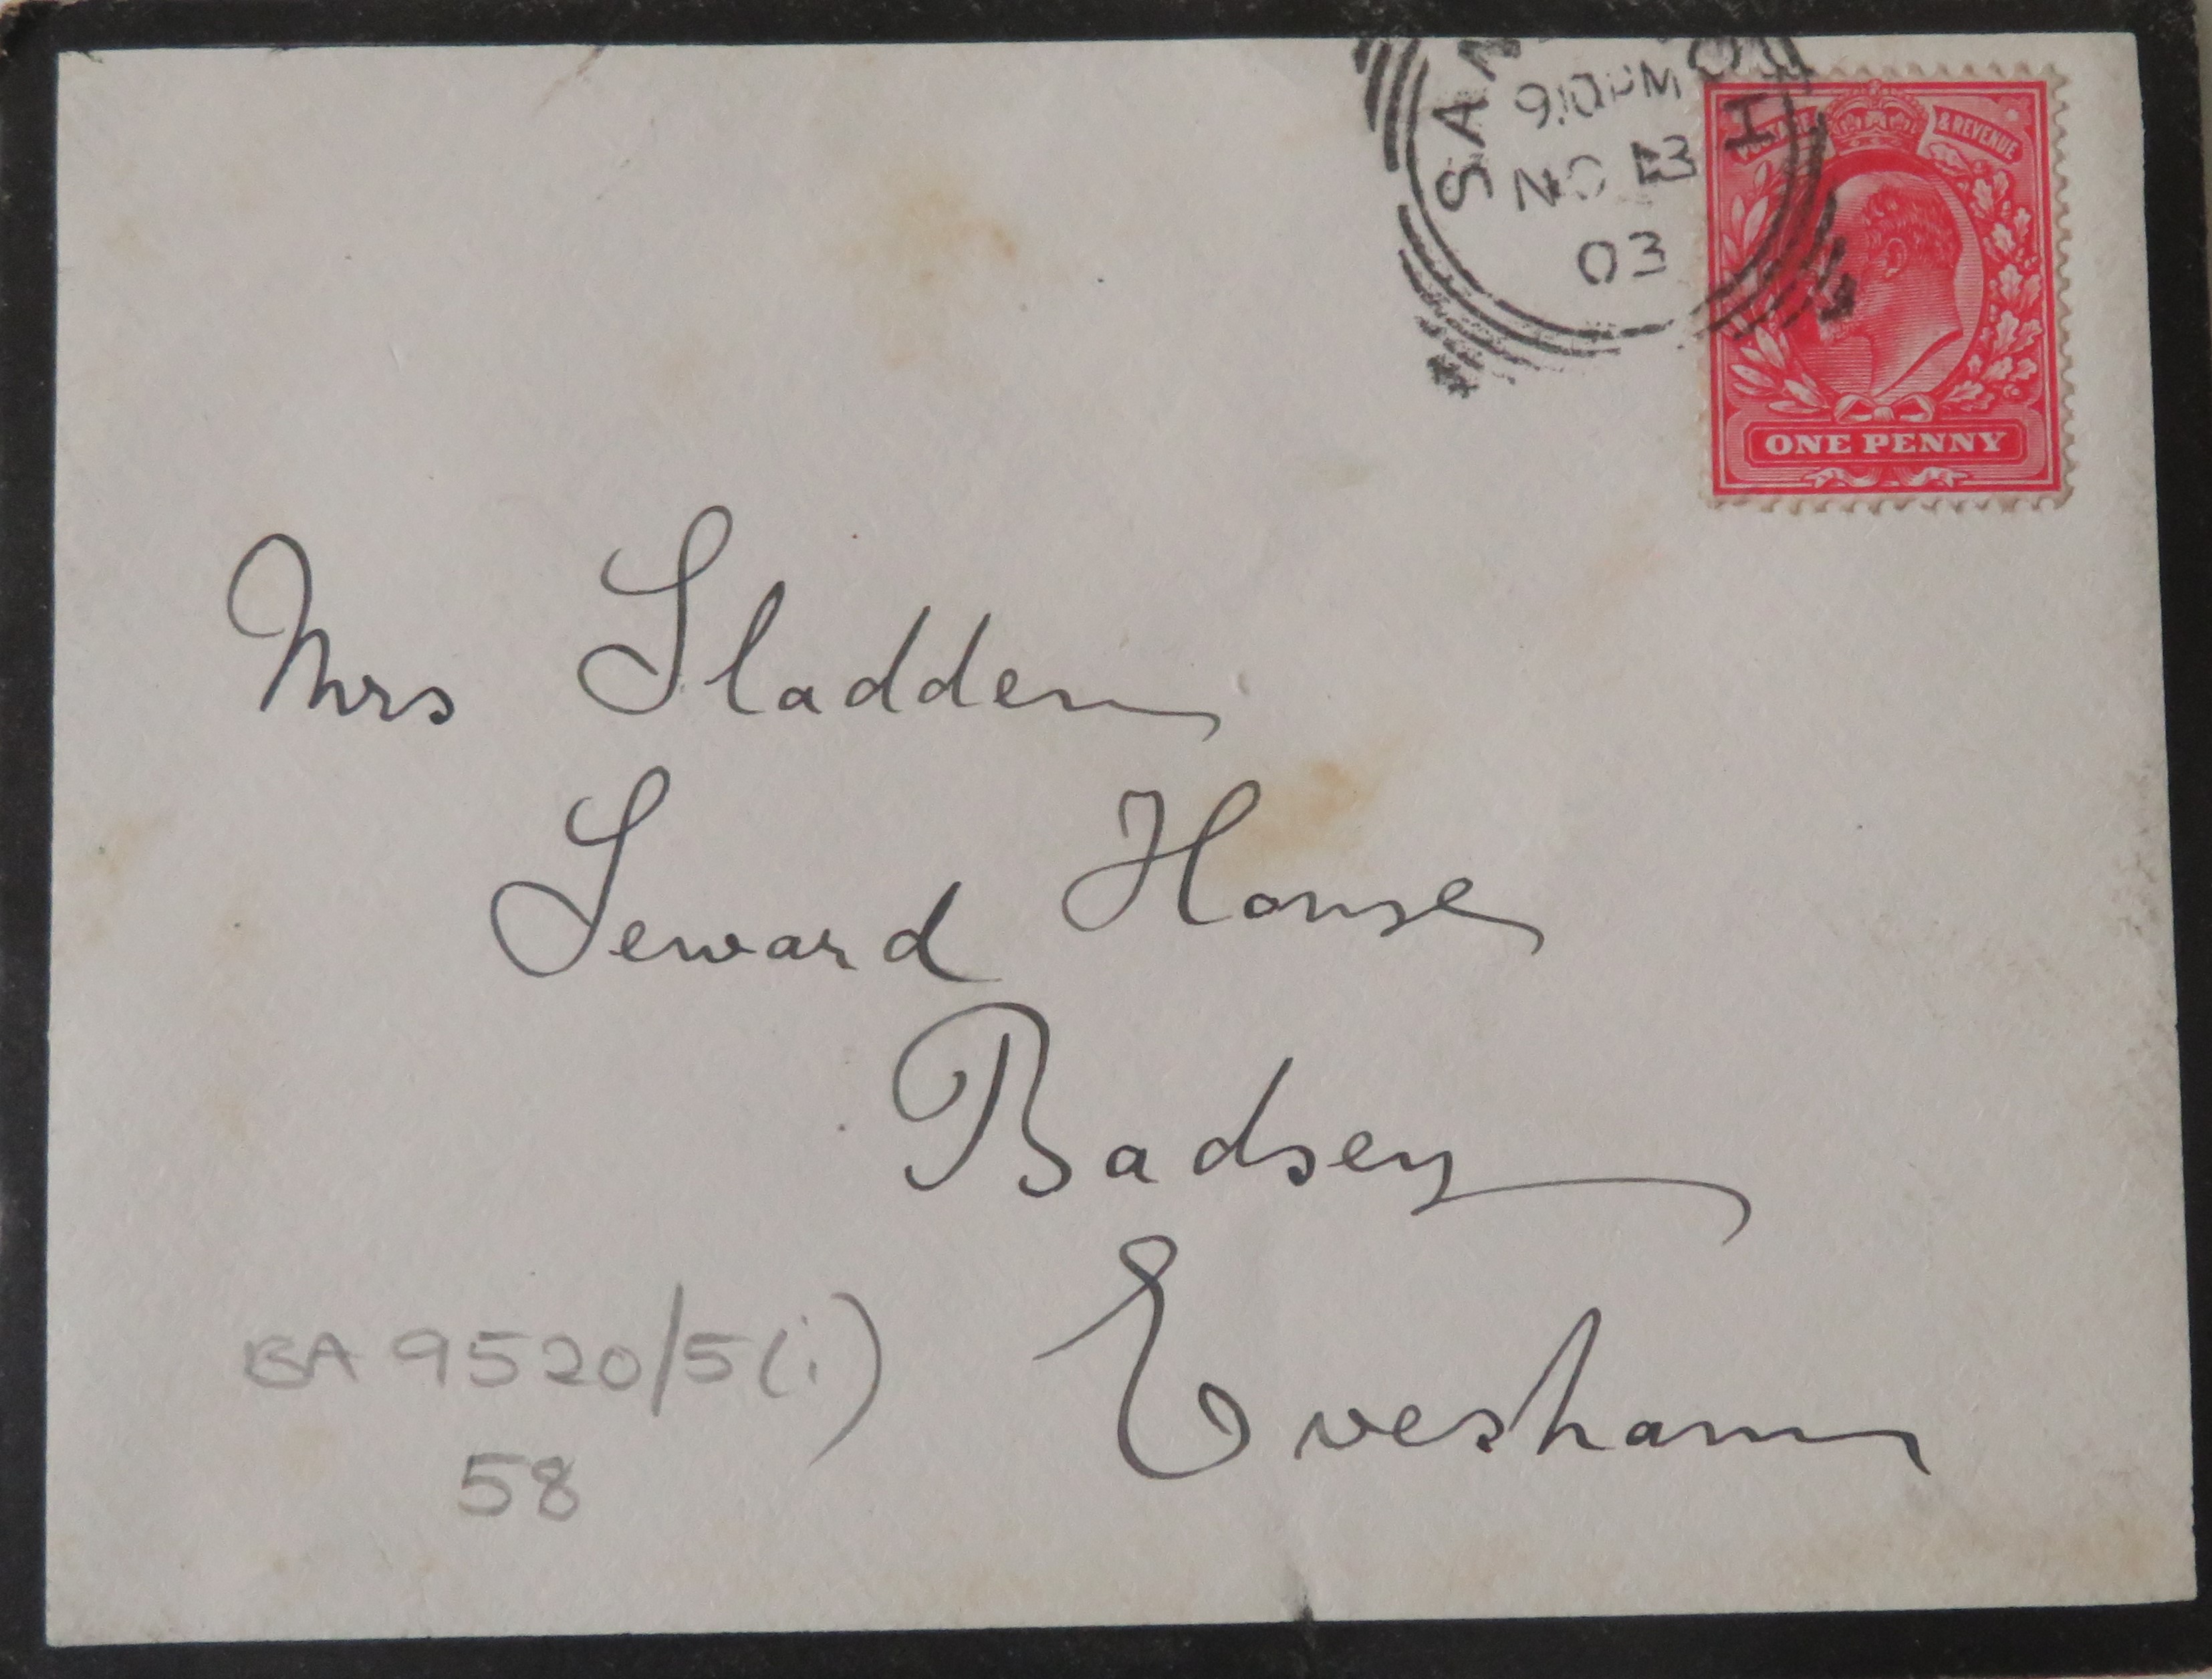 9.10PM
03
POSTAGE & REVENUE
ONE PENNY
Mrs Sladden
Seward House
Badsey
Evesham
BA 9520/5(i)
58